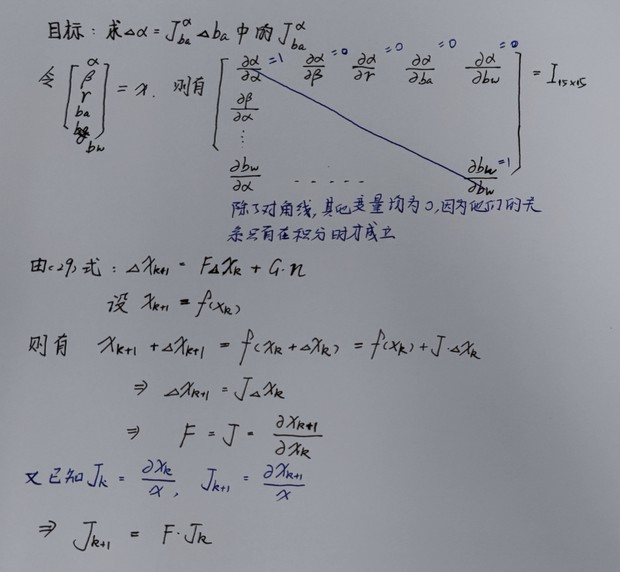 目标：求△α = J^α_ba △ba 中的 J^α_ba
令 [α β γ ba bw] = x. 则有 [∂α/∂α =1 ∂α/∂β =0 ∂α/∂γ =0 ∂α/∂ba =0 ∂α/∂bw =0
∂β/∂α
⋮
∂bw/∂α - - - - - ∂bw/∂bw =1] = I₁₅ₓ₁₅
除了对角线，其他变量均为0，因为他们的关
系只有在积分时才成立
由(29)式：△x_{k+1} = F△x_k + G·n
设 x_{k+1} = f(x_k)
则有 x_{k+1} + △x_{k+1} = f(x_k + △x_k) = f(x_k) + J·△x_k
⇒ △x_{k+1} = J△x_k
⇒ F = J = ∂x_{k+1}/∂x_k
又已知 J_k = ∂x_k/x, J_{k+1} = ∂x_{k+1}/x
⇒ J_{k+1} = F·J_k